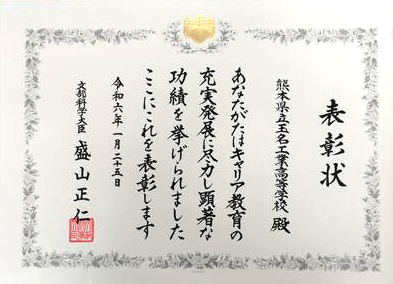 表彰状
熊本県立玉名工業高等学校 殿
あなたがたはキャリア教育の
充実発展に尽力し顕著な
功績を挙げられました
ここにこれを表彰します
令和六年一月二十五日
文部科学大臣 盛山正仁